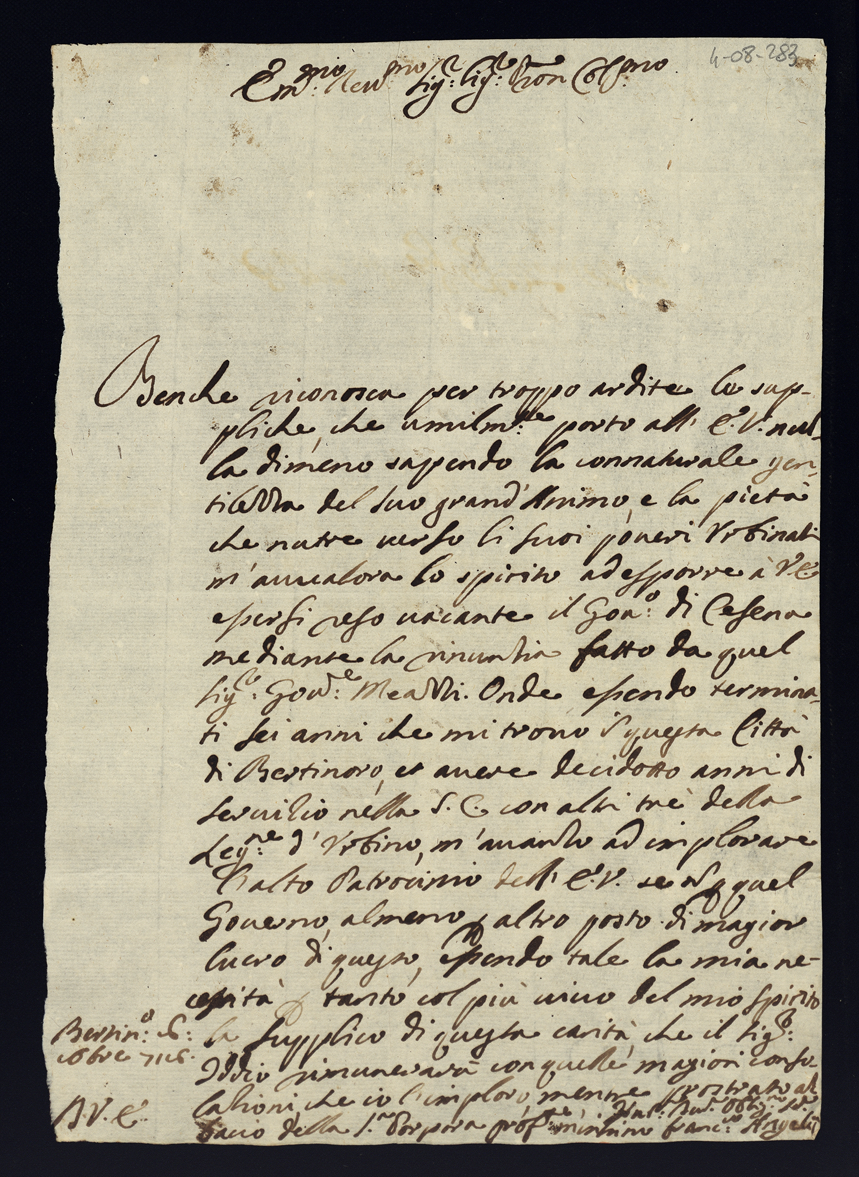 4-08-283
Em.mo Rev.mo Sig.r Sig.r Pron Col.mo
Benche riconosca per troppo ardite le sup-
pliche, che umilm.te porto all' E.V. nul-
la dimeno sapendo la connaturale gen-
tilezza del suo grand'Animo, e la pietà
che nutre verso li suoi poveri Urbinati
m'auualora lo spirito ad esporre à V.E.
essersi reso vacante il Gou.o di Cesena
mediante la rinuntia fatto da quel
Sig.r Gou.re Meazzi. Onde essendo termina-
ti sei anni che mi trovo in questa Città
di Bertinoro, et avere decidotto anni di
servizio nella S.C. con altri trè della
Leg.ne d'Urbino, m'auanzo ad implorare
l'alto Patrocinio dell' E.V. se non p quel
Governo, almeno p altro posto di magior
lucro di questo, essendo tale la mia ne-
cessità p tanto col più vivo del mio spirito
la supplico di questa carità, che il Sig.re
Iddio rimunererà con quelle magiori conso-
lationi, che io l'imploro, mentre prostrato al
bacio della S.ra Porpora prof.te m'inchino
Bertin.o
8bre 1716.
D.V.E.
Um.o Dev.o Obb.o Se.
Franc.o Angeli